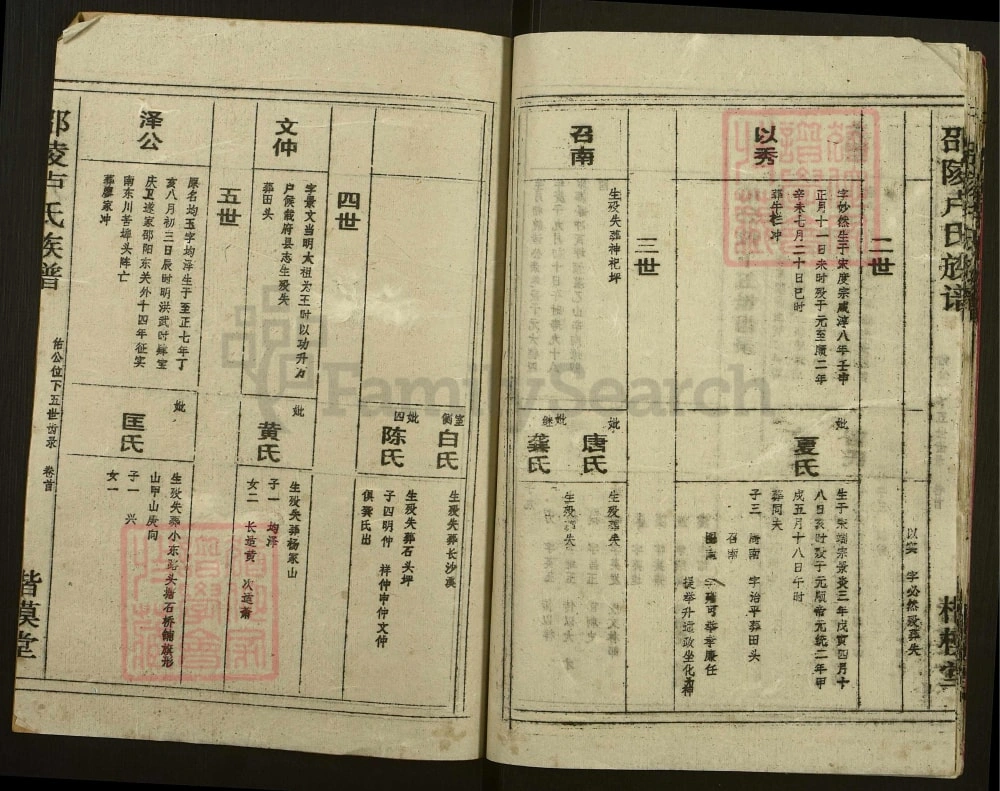 邵陵卢氏族谱
以实 字必然殁葬失
二世
以秀
字妙然生于宋度宗咸淳八年壬申
正月十一日未时殁于元至顺二年
辛未七月二十日巳时
葬牛栏冲
妣
夏氏
生于宋端宗景炎三年戊寅四月十
八日亥时殁于元顺帝元统二年甲
戌五月十八日午时
葬同夫
子三 周南 字治平葬田头
召南
图南
提举升运政坐化为神
三世
召南
生殁失葬神祀坪
妣
唐氏
生殁葬失
继妣
龚氏
生殁葬失
白氏
生殁失葬长沙溪
四妣
陈氏
生殁失葬石头坪
子四明仲 祥仲申仲文仲
俱龚氏出
四世
文仲
字景文当明太祖为王时以功升万
户侯载府县志生殁失
葬田头
妣
黄氏
生殁失葬杨家山
子一 均泽
女二 长适黄 次适萧
五世
泽公
原名均玉字均泽生于至正七年丁
亥八月初三日辰时明洪武时肆宝
庆卫遂家邵阳东关外十四年征实
南东川苦埠头阵亡
葬廖家冲
妣
匡氏
生殁失葬小东路头塘石桥铺旗形
山甲山庚向
子一 兴
女一
邵陵卢氏族谱
佑公位下五世齿录 卷首
楷模堂
FamilySearch